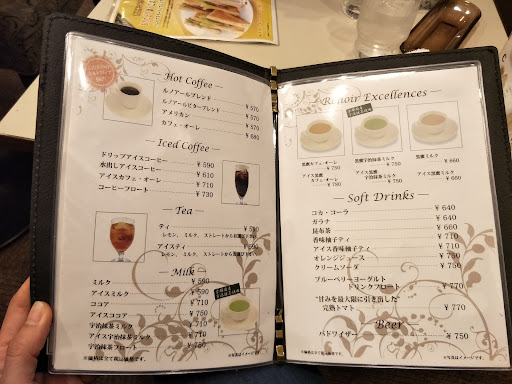 Hot Coffee
ルノアールブレンド ¥ 570
ルノアールビターブレンド ¥ 570
アメリカン ¥ 570
カフェ・オーレ ¥ 680
Iced Coffee
ドリップアイスコーヒー ¥ 590
水出しアイスコーヒー ¥ 610
アイスカフェ・オーレ ¥ 710
コーヒーフロート ¥ 730
Tea
ティ ¥ 590
レモン、ミルク、ストレートからお選び下さい
アイスティ ¥ 590
レモン、ミルク、ストレートからお選び下さい
Milk
ミルク ¥ 590
アイスミルク ¥ 590
ココア ¥ 710
アイスココア ¥ 710
宇治抹茶ミルク ¥ 710
アイス宇治抹茶ミルク ¥ 710
宇治抹茶フロート ¥ 750
※価格は全て税込価格です。
※写真はイメージです。
Renoir Excellences
黒蜜カフェ・オーレ ¥ 750
アイス黒蜜カフェ・オーレ ¥ 750
黒蜜宇治抹茶ミルク ¥ 750
アイス黒蜜宇治抹茶ミルク ¥ 750
黒蜜ミルク ¥ 660
アイス黒蜜ミルク ¥ 660
Soft Drinks
コカ・コーラ ¥ 640
ガラナ ¥ 640
昆布茶 ¥ 660
香味柚子ティ ¥ 710
アイス香味柚子ティ ¥ 710
オレンジジュース ¥ 710
クリームソーダ ¥ 750
ブルーベリーヨーグルト
ドリンクフロート ¥ 770
“甘みを最大限に引き出した”
完熟トマト ¥ 770
Beer
バドワイザー ¥ 750
※価格は全て税込価格です。
※写真はイメージです。